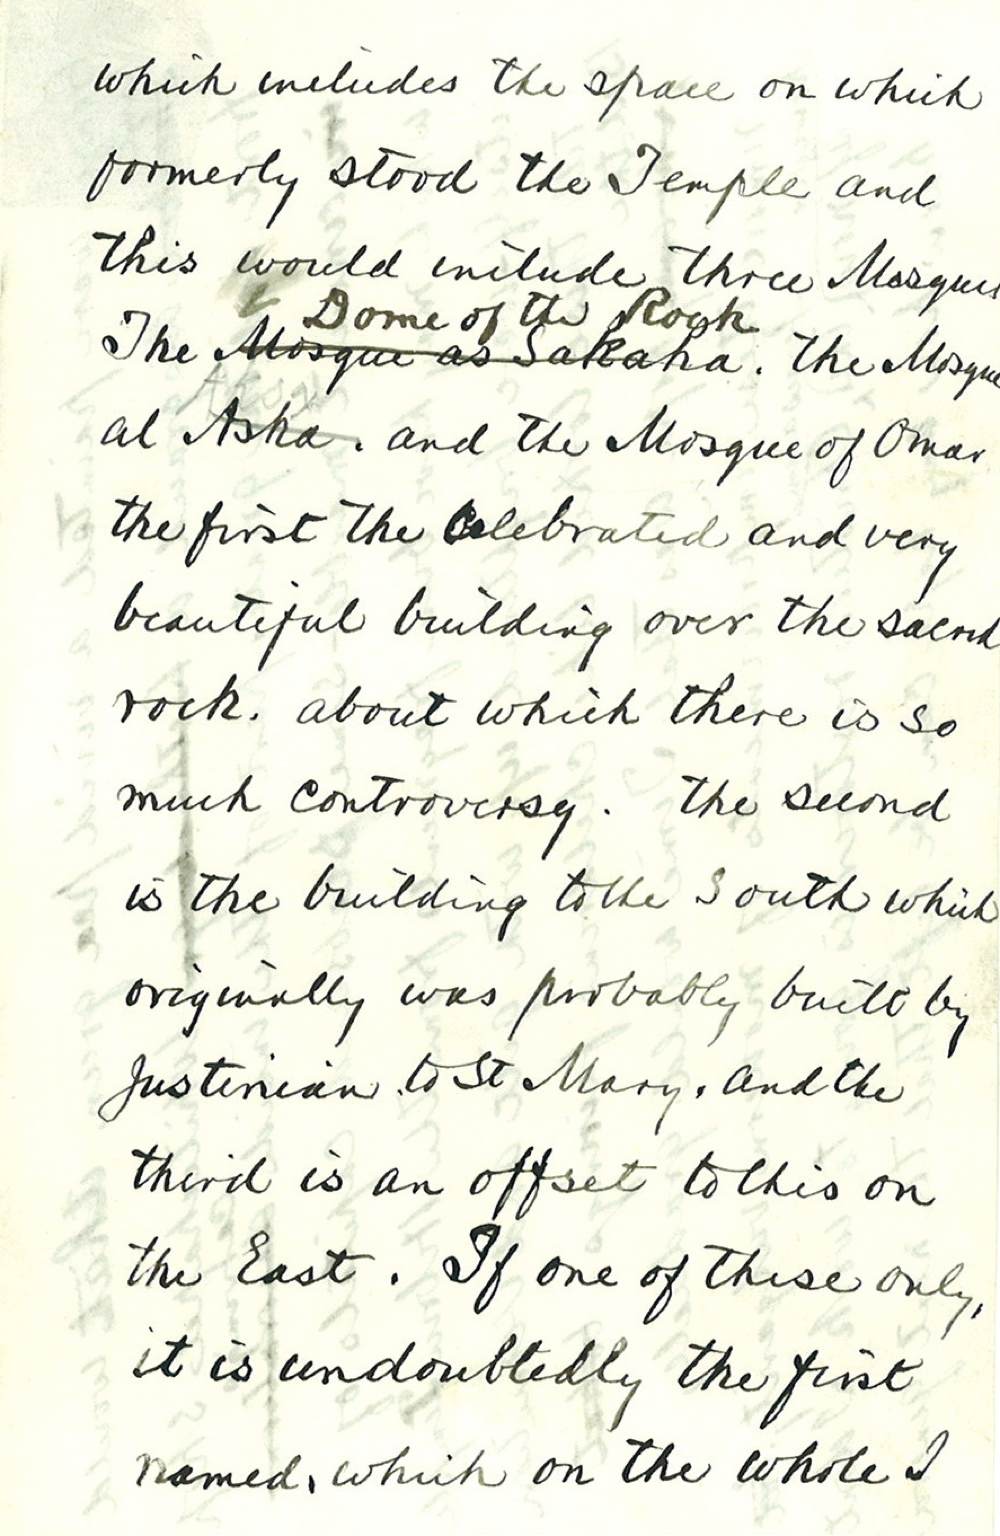 which includes the space on which
formerly stood the Temple and
this would include three Mosques
Dome of the Rock
The Mosque as Sakaha. The Mosque
al Aska. and the Mosque of Omar
the first the celebrated and very
beautiful building over the sacred
rock. about which there is so
much controversy. The second
is the building to the South which
originally was probably built by
Justinian to St Mary. and the
third is an offset to this on
the East. If one of these only,
it is undoubtedly the first
named, which on the whole I